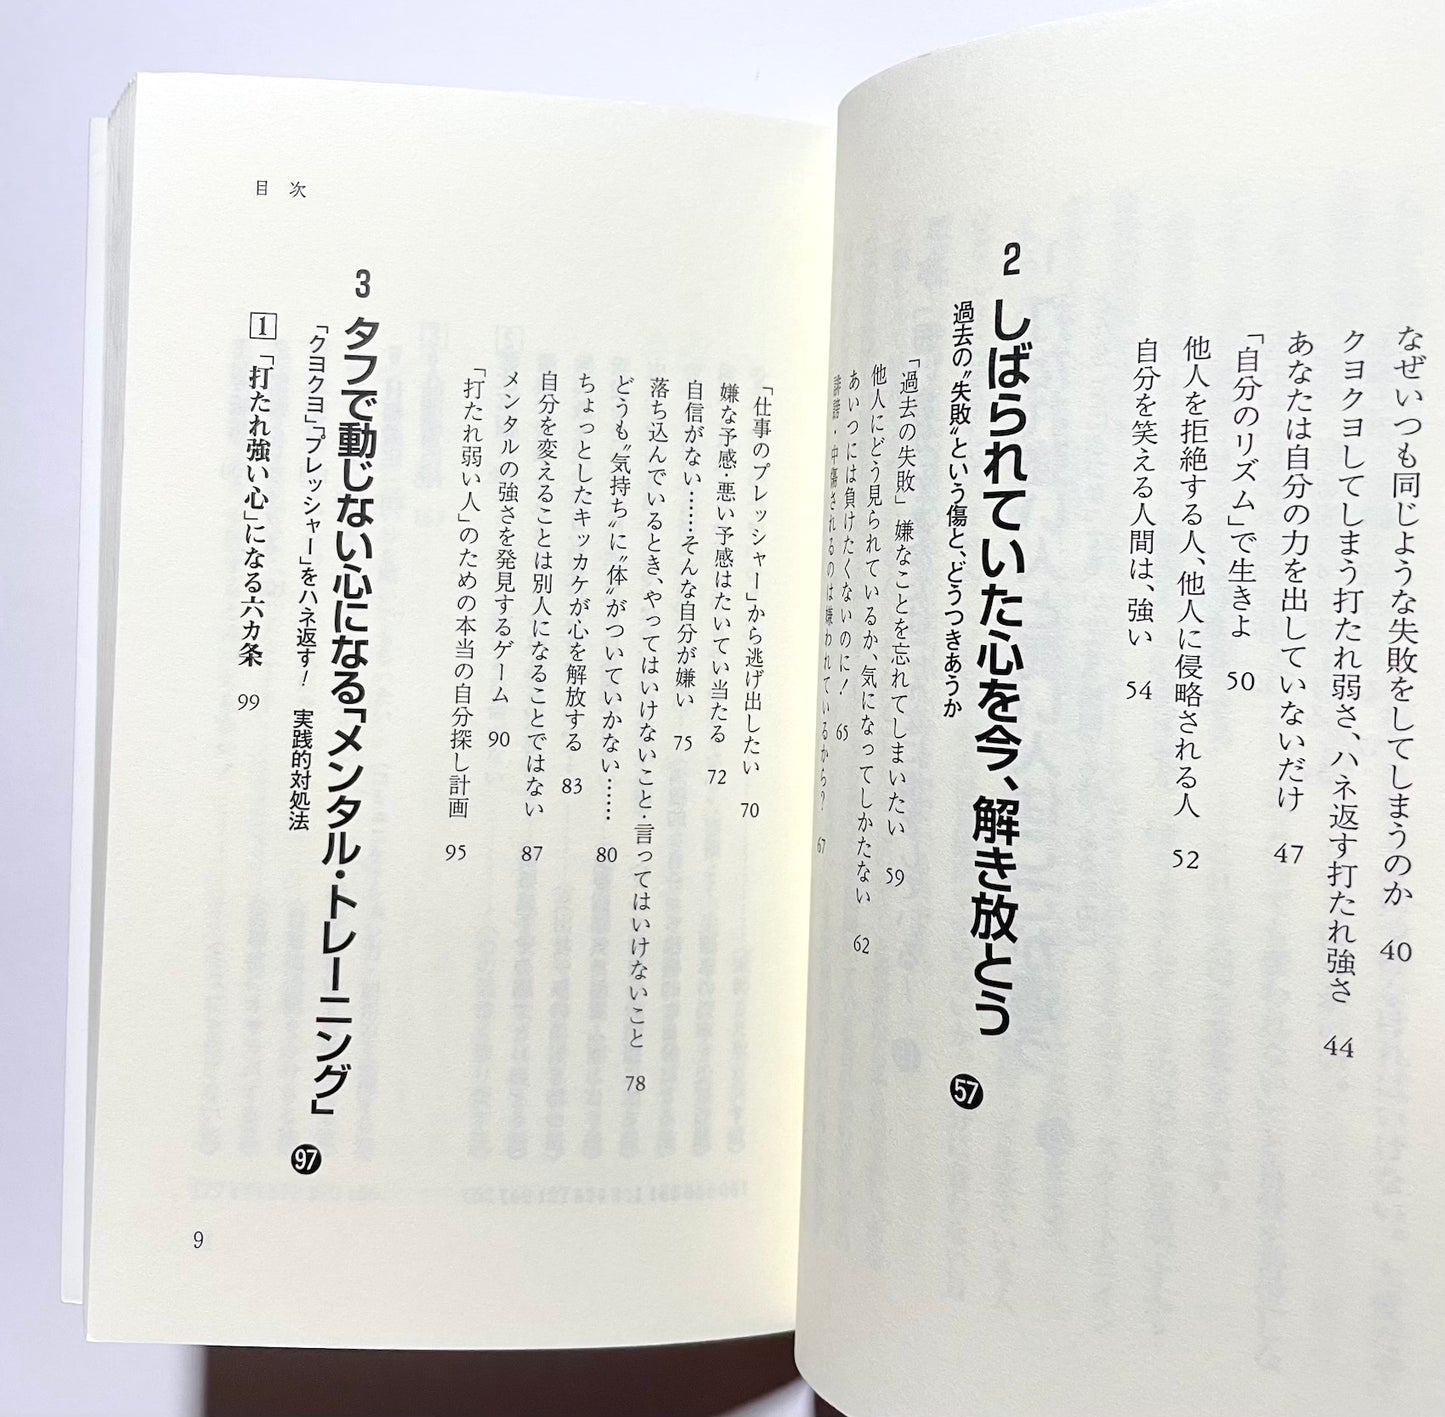 なぜいつも同じような失敗をしてしまうのか 40
クヨクヨしてしまう打たれ弱さ、ハネ返す打たれ強さ 44
あなたは自分の力を出していないだけ 47
「自分のリズム」で生きよ 50
他人を拒絶する人、他人に侵略される人 52
自分を笑える人間は、強い 54
2 しばられていた心を今、解き放とう 57
過去の〝失敗〟という傷と、どうつきあうか
「過去の失敗」嫌なことを忘れてしまいたい 59
他人にどう見られているか、気になってしかたない 62
あいつには負けたくないのに! 65
誹謗・中傷されるのは嫌われているから? 67
「仕事のプレッシャー」から逃げ出したい 70
嫌な予感・悪い予感はたいてい当たる 72
自信がない……そんな自分が嫌い 75
落ち込んでいるとき、やってはいけないこと・言ってはいけないこと 78
どうも〝気持ち〟に〝体〟がついていかない…… 80
ちょっとしたキッカケが心を解放する 83
自分を変えることは別人になることではない 87
メンタルの強さを発見するゲーム 90
「打たれ弱い人」のための本当の自分探し計画 95
3 タフで動じない心になる「メンタル・トレーニング」 97
「クヨクヨ」「プレッシャー」をハネ返す! 実践的対処法
1 「打たれ強い心」になる六カ条 99
目次
9